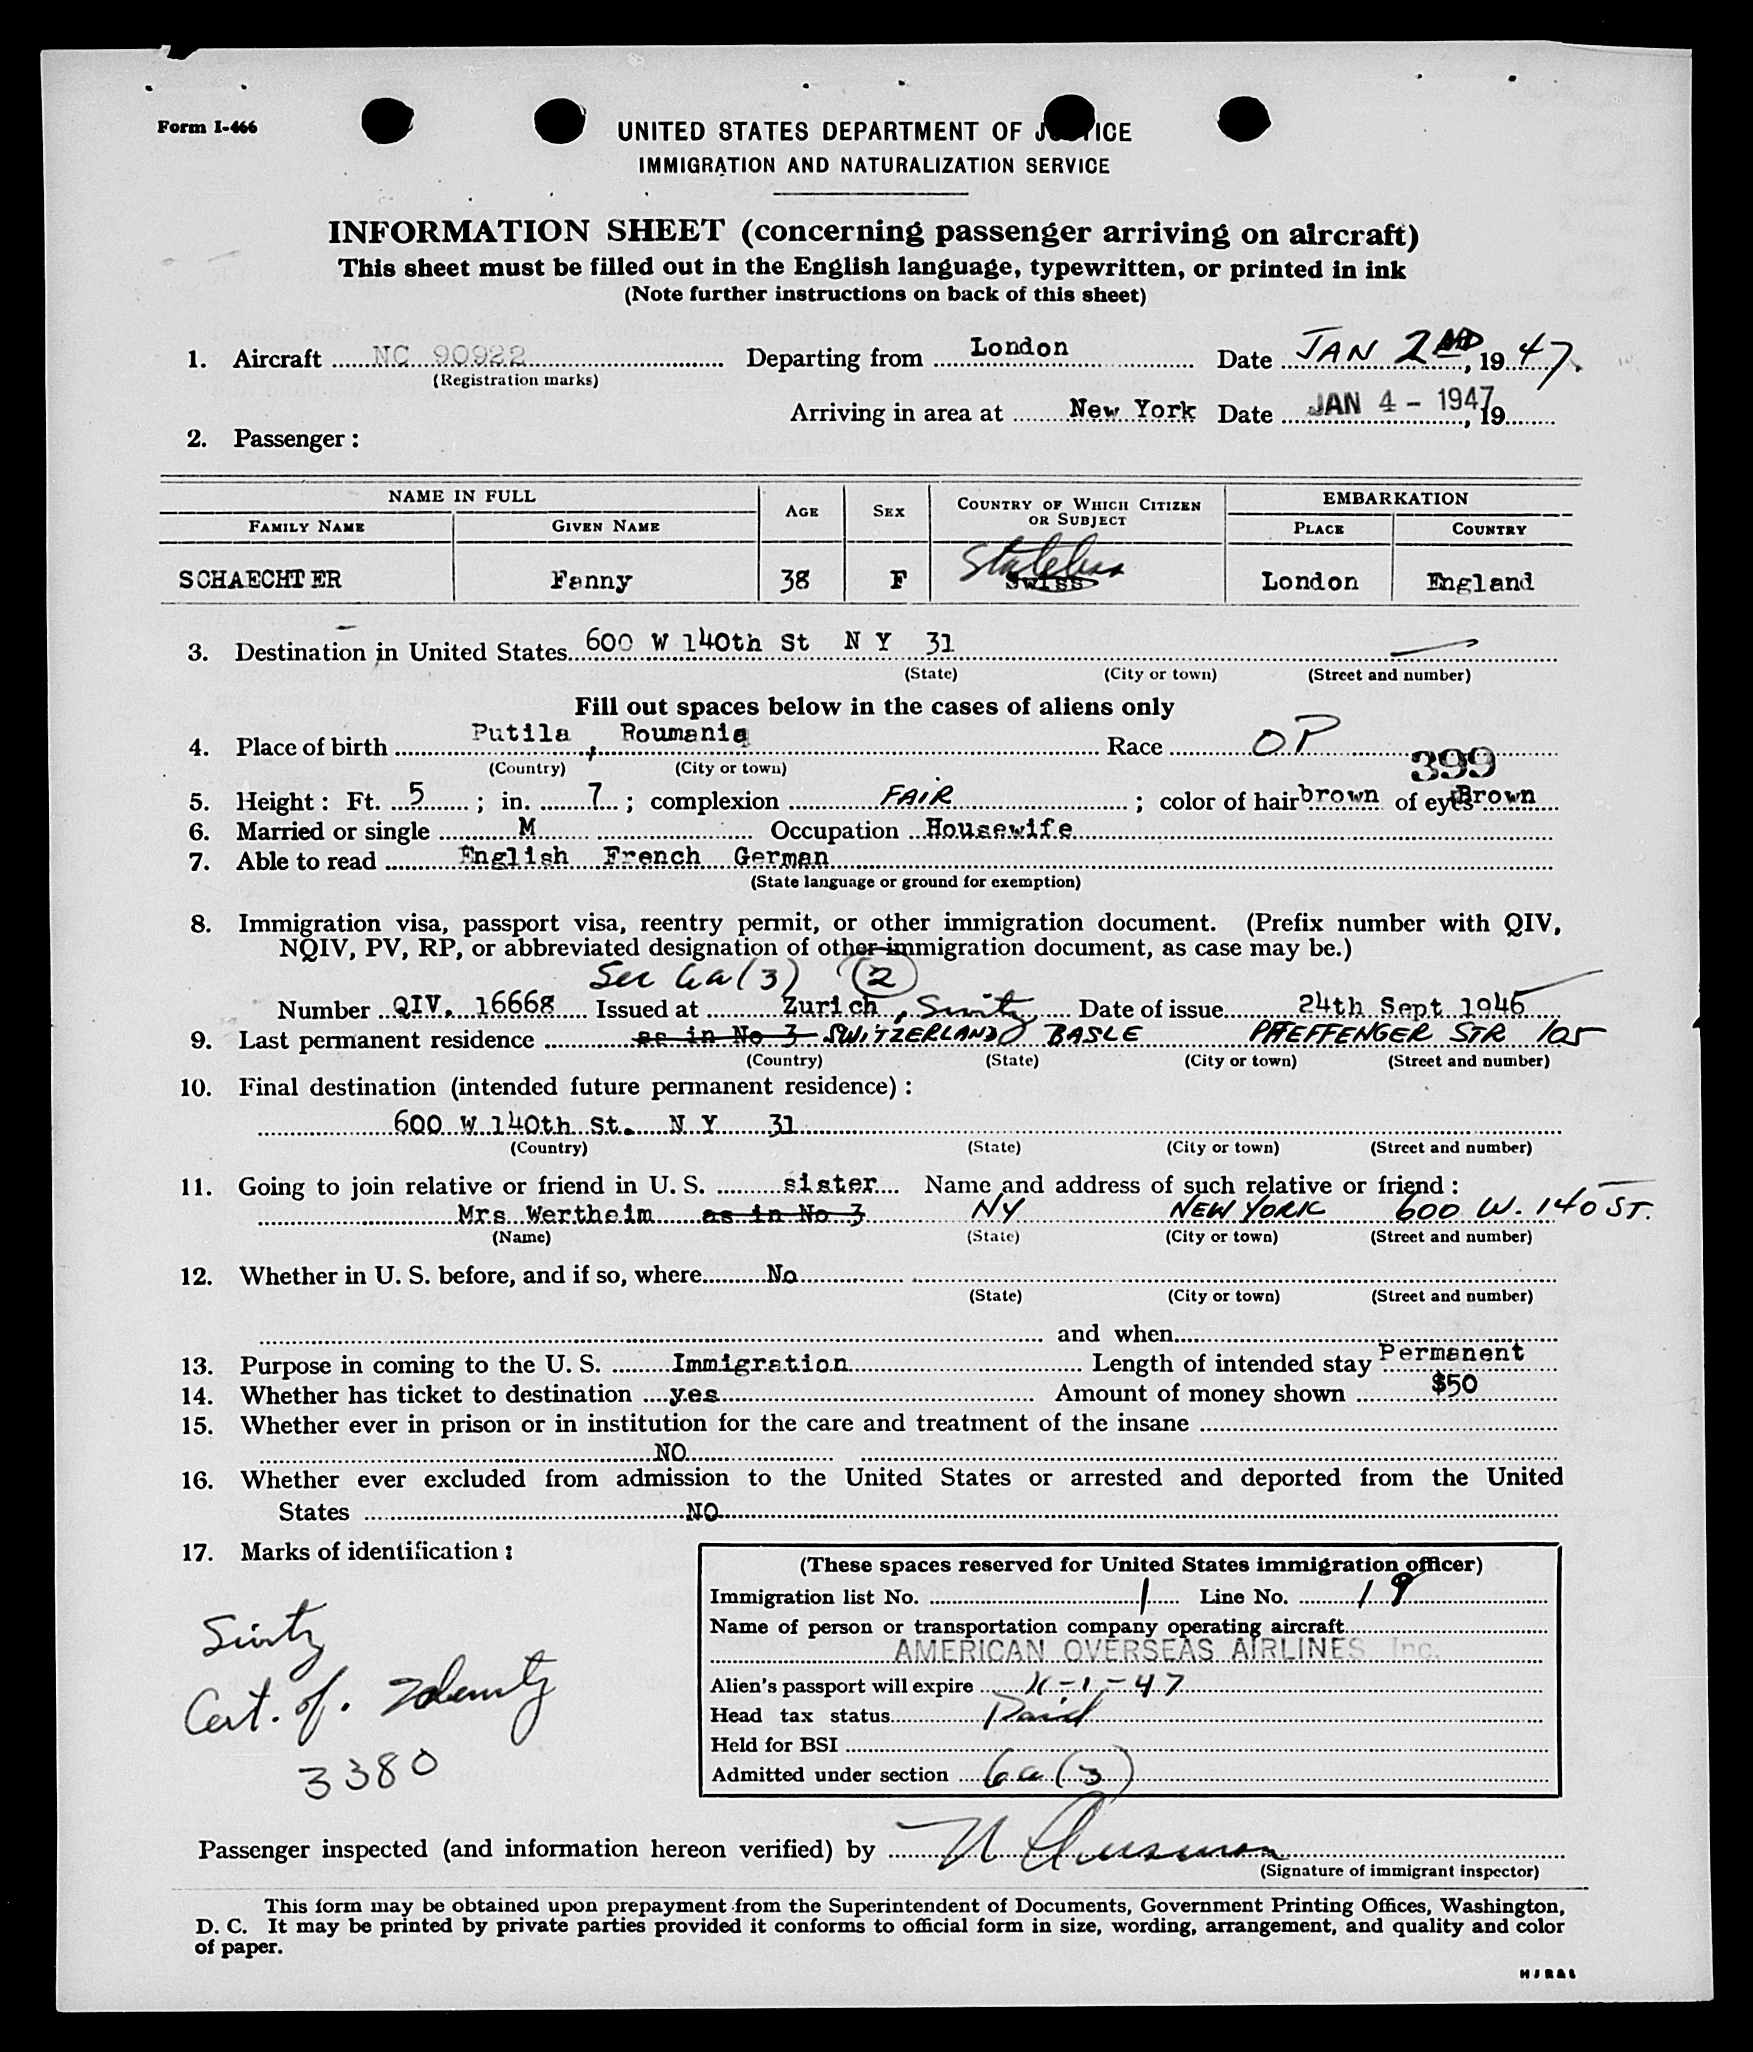 Form I-466
UNITED STATES DEPARTMENT OF JUSTICE
IMMIGRATION AND NATURALIZATION SERVICE
INFORMATION SHEET (concerning passenger arriving on aircraft)
This sheet must be filled out in the English language, typewritten, or printed in ink
(Note further instructions on back of this sheet)
1. Aircraft NC 90922 Departing from London Date JAN 2ND, 1947
(Registration marks)
Arriving in area at New York Date JAN 4 - 1947, 19
2. Passenger:
NAME IN FULL AGE SEX COUNTRY OF WHICH CITIZEN OR SUBJECT EMBARKATION
FAMILY NAME GIVEN NAME PLACE COUNTRY
Stateless
SCHAECHTER Fanny 38 F Swiss London England
3. Destination in United States 600 W 140th St N Y 31
(State) (City or town) (Street and number)
Fill out spaces below in the cases of aliens only
4. Place of birth Putila, Roumania Race OP
(Country) (City or town)
399
5. Height: Ft. 5; in. 7; complexion FAIR; color of hair brown of eyes Brown
6. Married or single M Occupation Housewife
7. Able to read English French German
(State language or ground for exemption)
8. Immigration visa, passport visa, reentry permit, or other immigration document. (Prefix number with QIV,
NQIV, PV, RP, or abbreviated designation of other immigration document, as case may be.)
Sec 6a(3) (2)
Number QIV. 16668 Issued at Zurich, Switz Date of issue 24th Sept 1946
9. Last permanent residence as in No 3 SWITZERLAND BASLE PFEFFENGER STR 105
(Country) (State) (City or town) (Street and number)
10. Final destination (intended future permanent residence):
600 W 140th St. N Y 31
(Country) (State) (City or town) (Street and number)
11. Going to join relative or friend in U. S. sister Name and address of such relative or friend:
Mrs Wertheim as in No 3 NY NEW YORK 600 W. 140 ST.
(Name) (State) (City or town) (Street and number)
12. Whether in U. S. before, and if so, where No
(State) (City or town) (Street and number)
and when
13. Purpose in coming to the U. S. Immigration Length of intended stay Permanent
14. Whether has ticket to destination yes Amount of money shown $50
15. Whether ever in prison or in institution for the care and treatment of the insane
NO
16. Whether ever excluded from admission to the United States or arrested and deported from the United
States NO
17. Marks of identification:
Switz
Cert. of. Identity
3380
(These spaces reserved for United States immigration officer)
Immigration list No. 1 Line No. 19
Name of person or transportation company operating aircraft
AMERICAN OVERSEAS AIRLINES Inc.
Alien's passport will expire 11-1-47
Head tax status Paid
Held for BSI
Admitted under section 6a(3)
Passenger inspected (and information hereon verified) by
(Signature of immigrant inspector)
This form may be obtained upon prepayment from the Superintendent of Documents, Government Printing Offices, Washington,
D. C. It may be printed by private parties provided it conforms to official form in size, wording, arrangement, and quality and color
of paper.